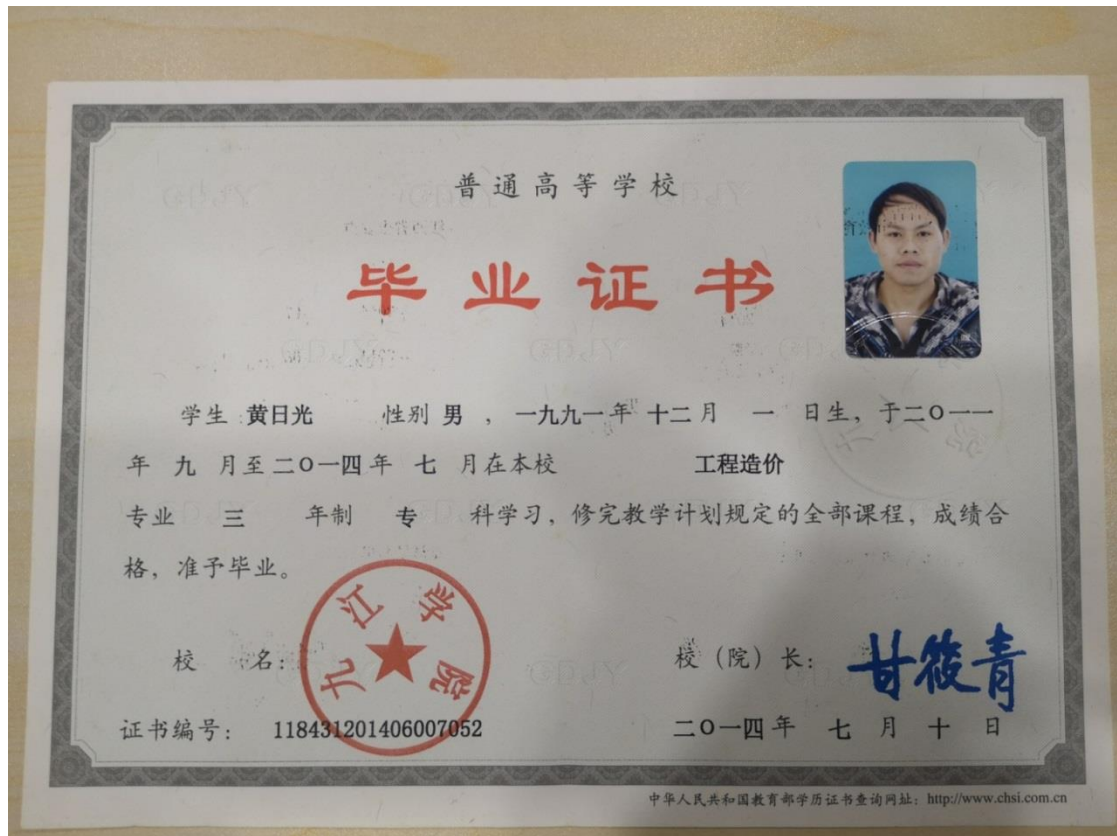 普通高等学校
毕业证书
学生 黄日光 性别 男 ， 一九九一年 十二月 一 日生，于二〇一一
年 九 月至二〇一四年 七 月在本校 工程造价
专业 三 年制 专 科学习，修完教学计划规定的全部课程，成绩合
格，准予毕业。
九江学院
校 名： 校（院）长： 甘筱青
证书编号： 118431201406007052 二〇一四年 七 月 十 日
中华人民共和国教育部学历证书查询网址：http://www.chsi.com.cn